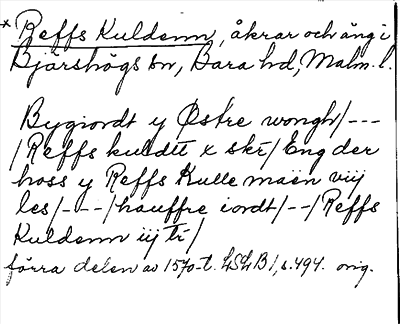 * Reffs Kuldenn, åkrar och äng i
Bjärshögs sn, Bara hd, Malm. l.
Bygiordt y Østre wongh/---
/Reffs kuldtt x skr/Eng der
hoss y Reffs Kulle maën viij
les/---/hauffre iordt/--/Reffs
Kuldenn iij tr/
förra delen av 1570-t. LSLB 1, s. 494. orig.